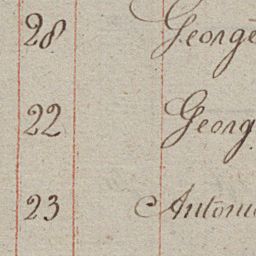 28 George
22 Georg
23 Antoni